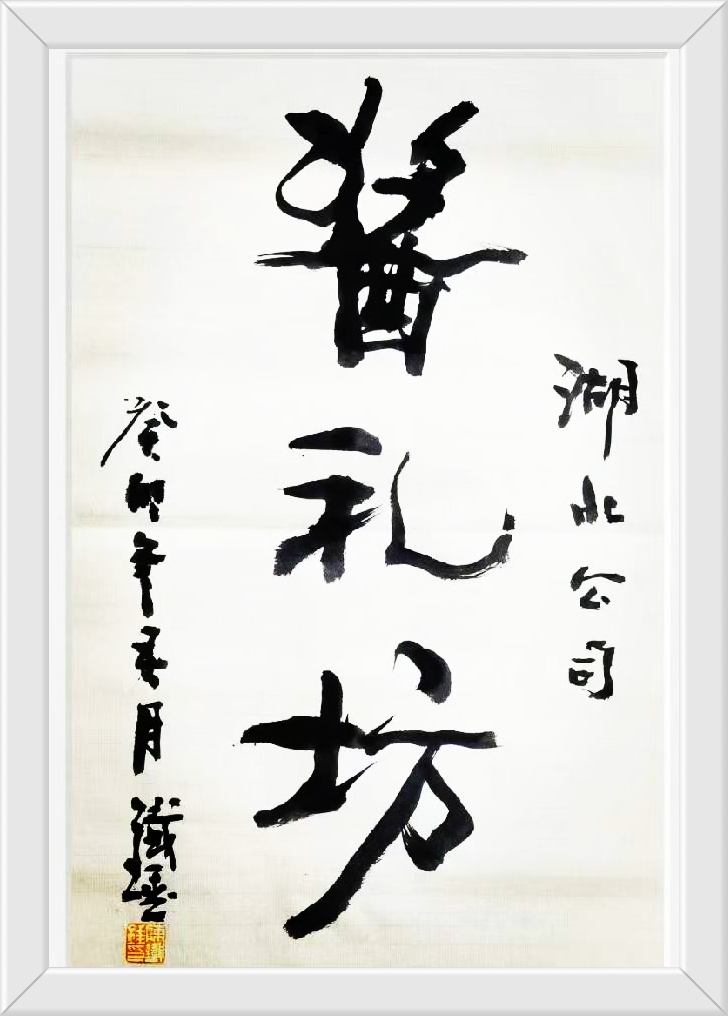 湖北公司
醬礼坊
癸卯年 月 鐵